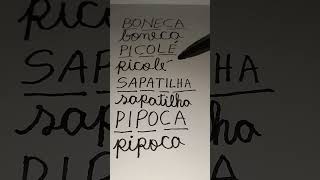 BONECA
boneca
PICOLÉ
picolé
SAPATILHA
sapatilha
PIPOCA
pipoca